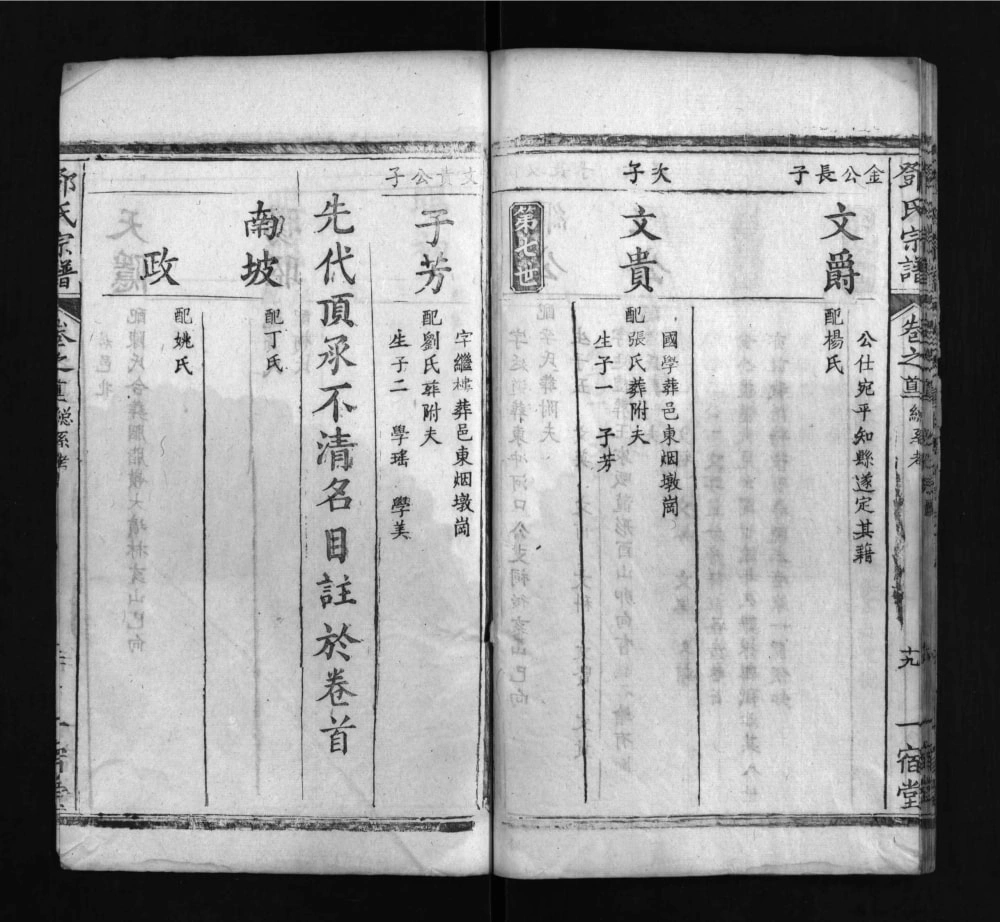 鄧氏宗譜
卷之首
總系考
十九
一宿堂
金公長子
文爵
公仕宛平知縣遂定其籍
配楊氏
次子
文貴
國學葬邑東烟墩崗
配張氏葬附夫
生子一 子芳
第七世
文貴公子
子芳
字繼棲葬邑東烟墩崗
配劉氏葬附夫
生子二 學瑤 學美
先代頂承不清名目註於卷首
南坡
配丁氏
政
配姚氏
氏宗譜
卷之
總系考